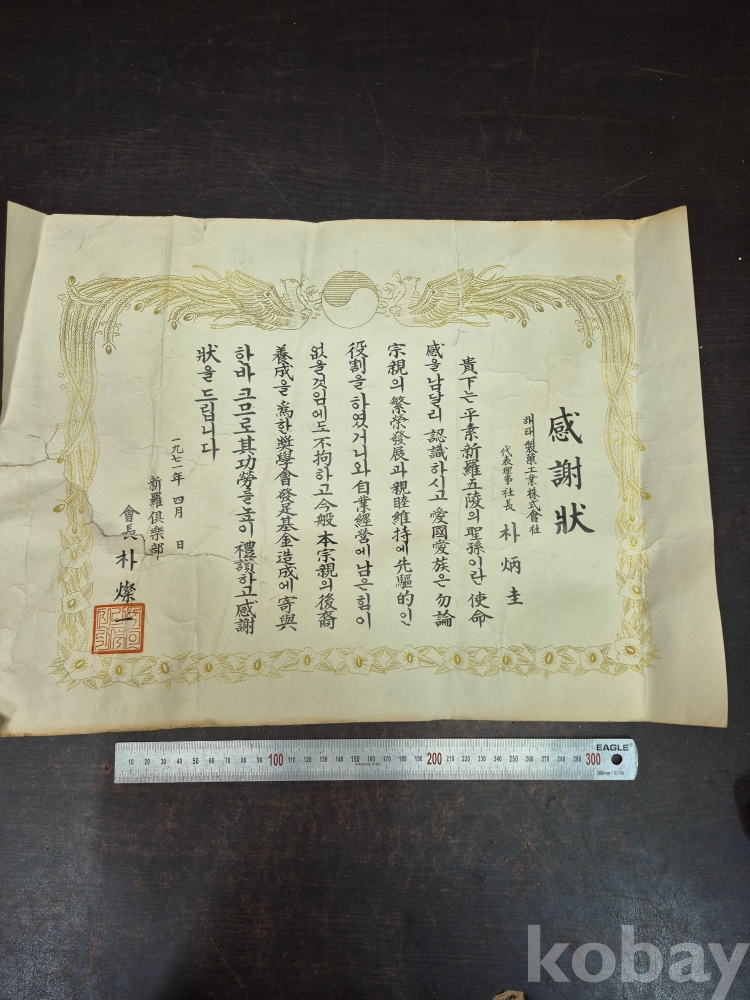 感謝狀
해태製菓工業株式會社
代表理事社長 朴炳圭
貴下는 平素新羅五陵의 聖孫이란 使命
感을 남달리 認識하시고 愛國愛族은 勿論
宗親의 繁榮發展과 親睦維持에 先驅的인
役割을 하였거니와 自業經營에 남은 힘이
없을것임에도 不拘하고 今般 本宗親의 後裔
養成을 爲한 奬學會發足基金造成에 寄與
한바 크므로 其功勞를 높이 禮讚하고 感謝
狀을 드립니다
一九七一年 四月 日
新羅俱樂部
會長 朴燦一
EAGLE
10 20 30 40 50 60 70 80 90 100 110 120 130 140 150 160 170 180 190 200 210 220 230 240 250 260 270 280 290 300
kobay